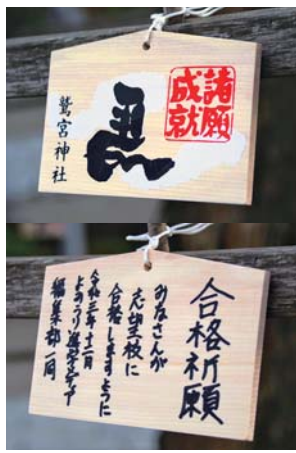 諸願
成就
馬
鷲宮神社
合格祈願
みなさんが
志望校に
合格しますように
令和三年十二月
よみうり進学メディア
編集部一同